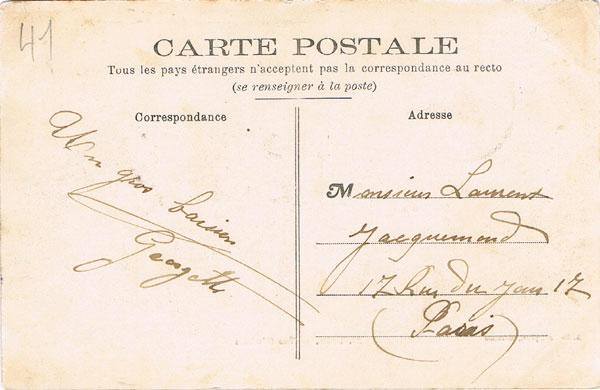 41
CARTE POSTALE
Tous les pays étrangers n'acceptent pas la correspondance au recto
(se renseigner à la poste)
Correspondance
Un gros baiser
Georgette
Adresse
Monsieur Laurent
Jacquemond
17 Rue du 17
(Paris)